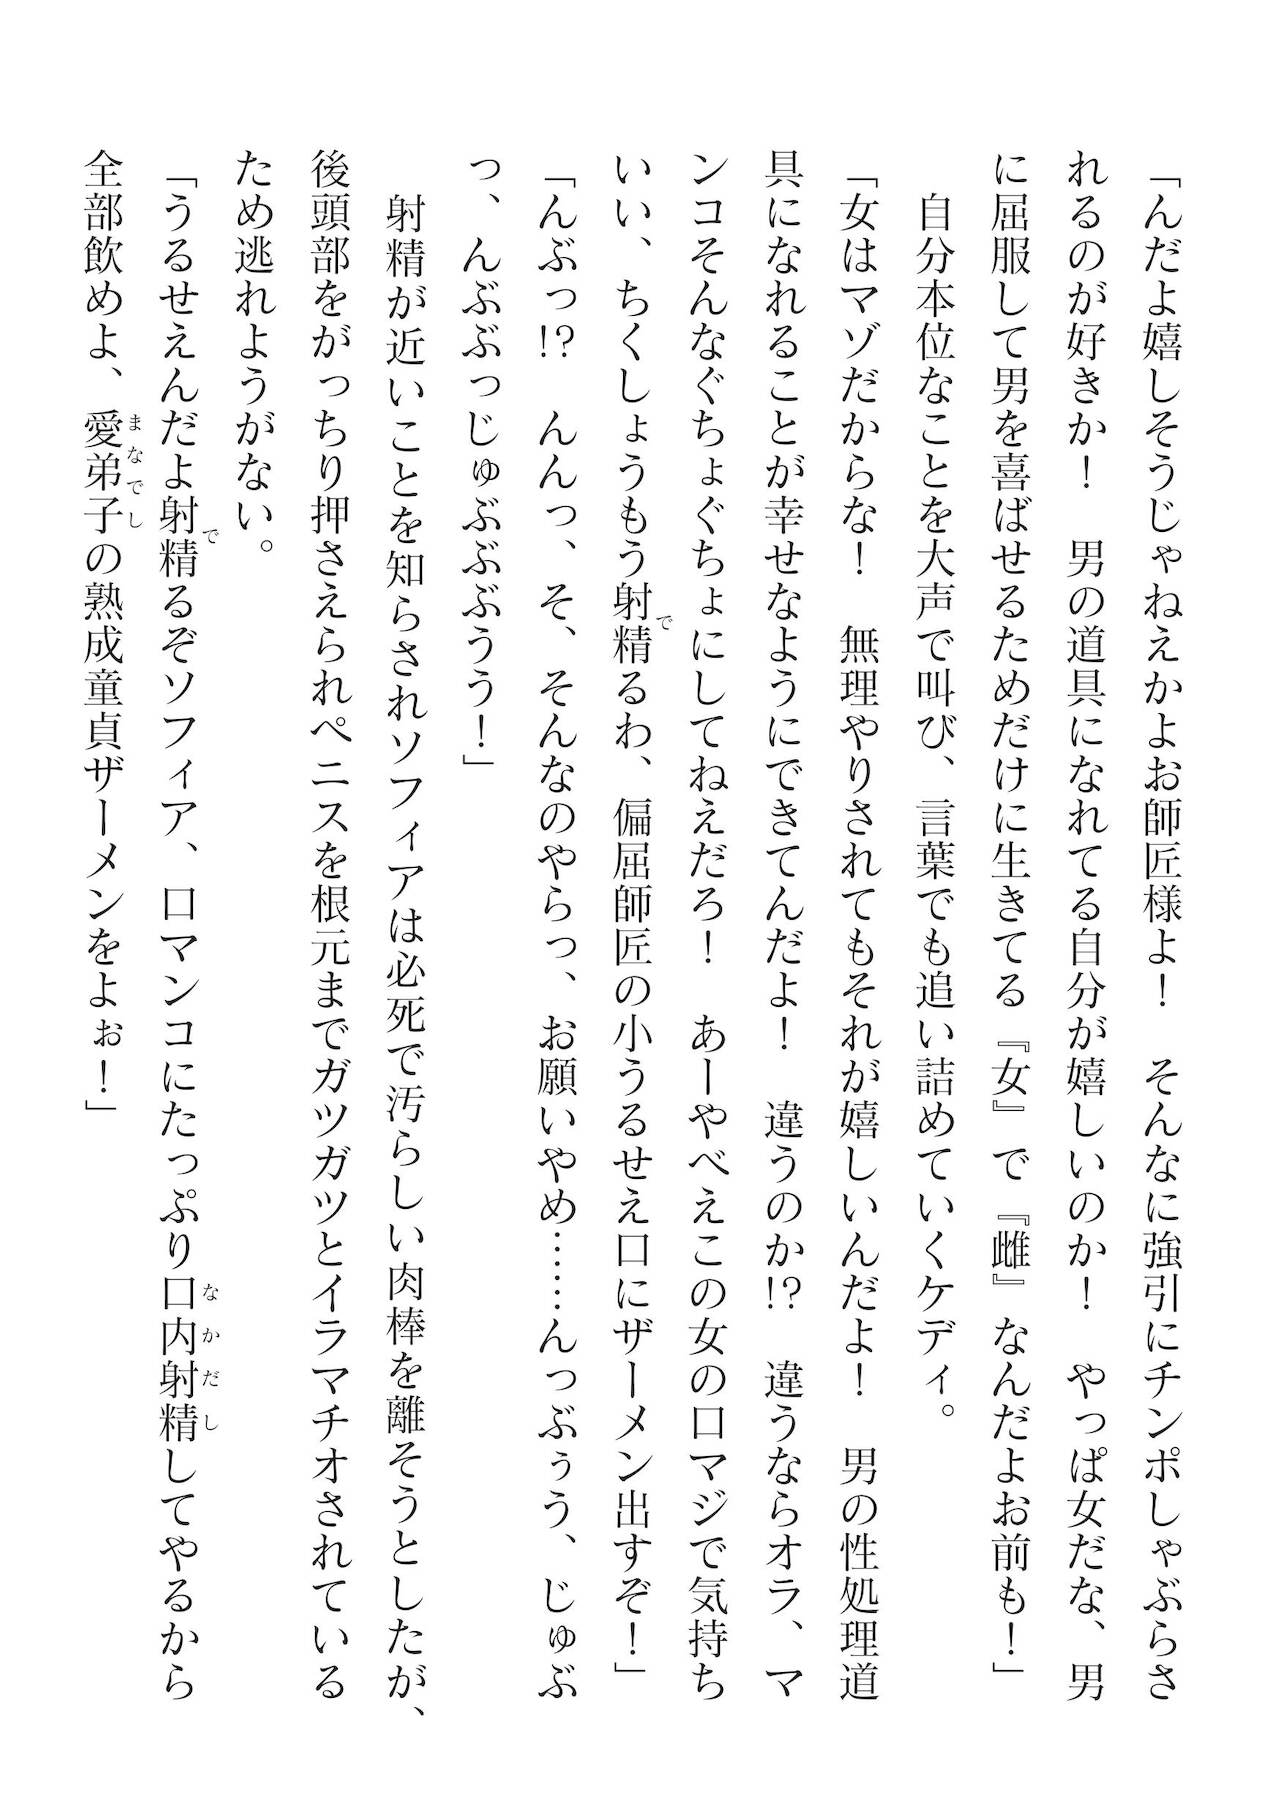 「んだよ嬉しそうじゃねえかよお師匠様よ！　そんなに強引にチンポしゃぶらさ
れるのが好きか！　男の道具になれてる自分が嬉しいのか！　やっぱ女だな、男
に屈服して男を喜ばせるためだけに生きてる『女』で『雌』なんだよお前も！」
　自分本位なことを大声で叫び、言葉でも追い詰めていくケディ。
「女はマゾだからな！　無理やりされてもそれが嬉しいんだよ！　男の性処理道
具になれることが幸せなようにできてんだよ！　違うのか!?　違うならオラ、マ
ンコそんなぐちょぐちょにしてねえだろ！　あーやべえこの女の口マジで気持ち
いい、ちくしょうもう射精るわ、偏屈師匠の小うるせえ口にザーメン出すぞ！」
「んぶっ!?　んんっ、そ、そんなのやらっ、お願いやめ……んっぶぅう、じゅぶ
っ、んぶぶっじゅぶぶぶうう！」
　射精が近いことを知らされソフィアは必死で汚らしい肉棒を離そうとしたが、
後頭部をがっちり押さえられペニスを根元までガツガツとイラマチオされている
ため逃れようがない。
「うるせえんだよ射精るぞソフィア、口マンコにたっぷり口内射精してやるから
全部飲めよ、愛弟子の熟成童貞ザーメンをよぉ！」